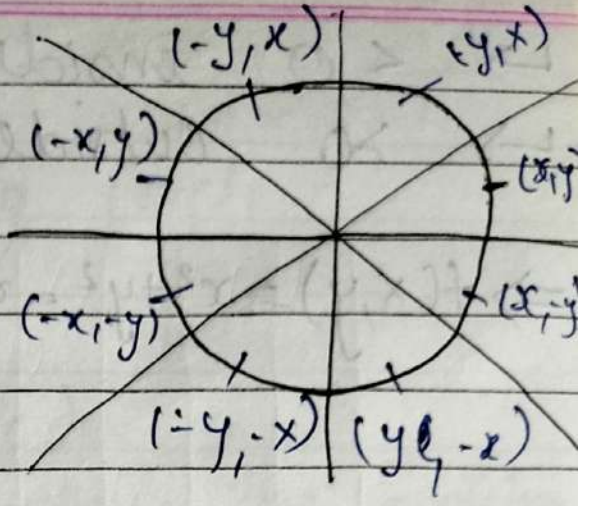 (-y, x) (y, x)
(-x, y) (x, y
(-x, -y) (x, -y
(-y, -x) (y, -x)